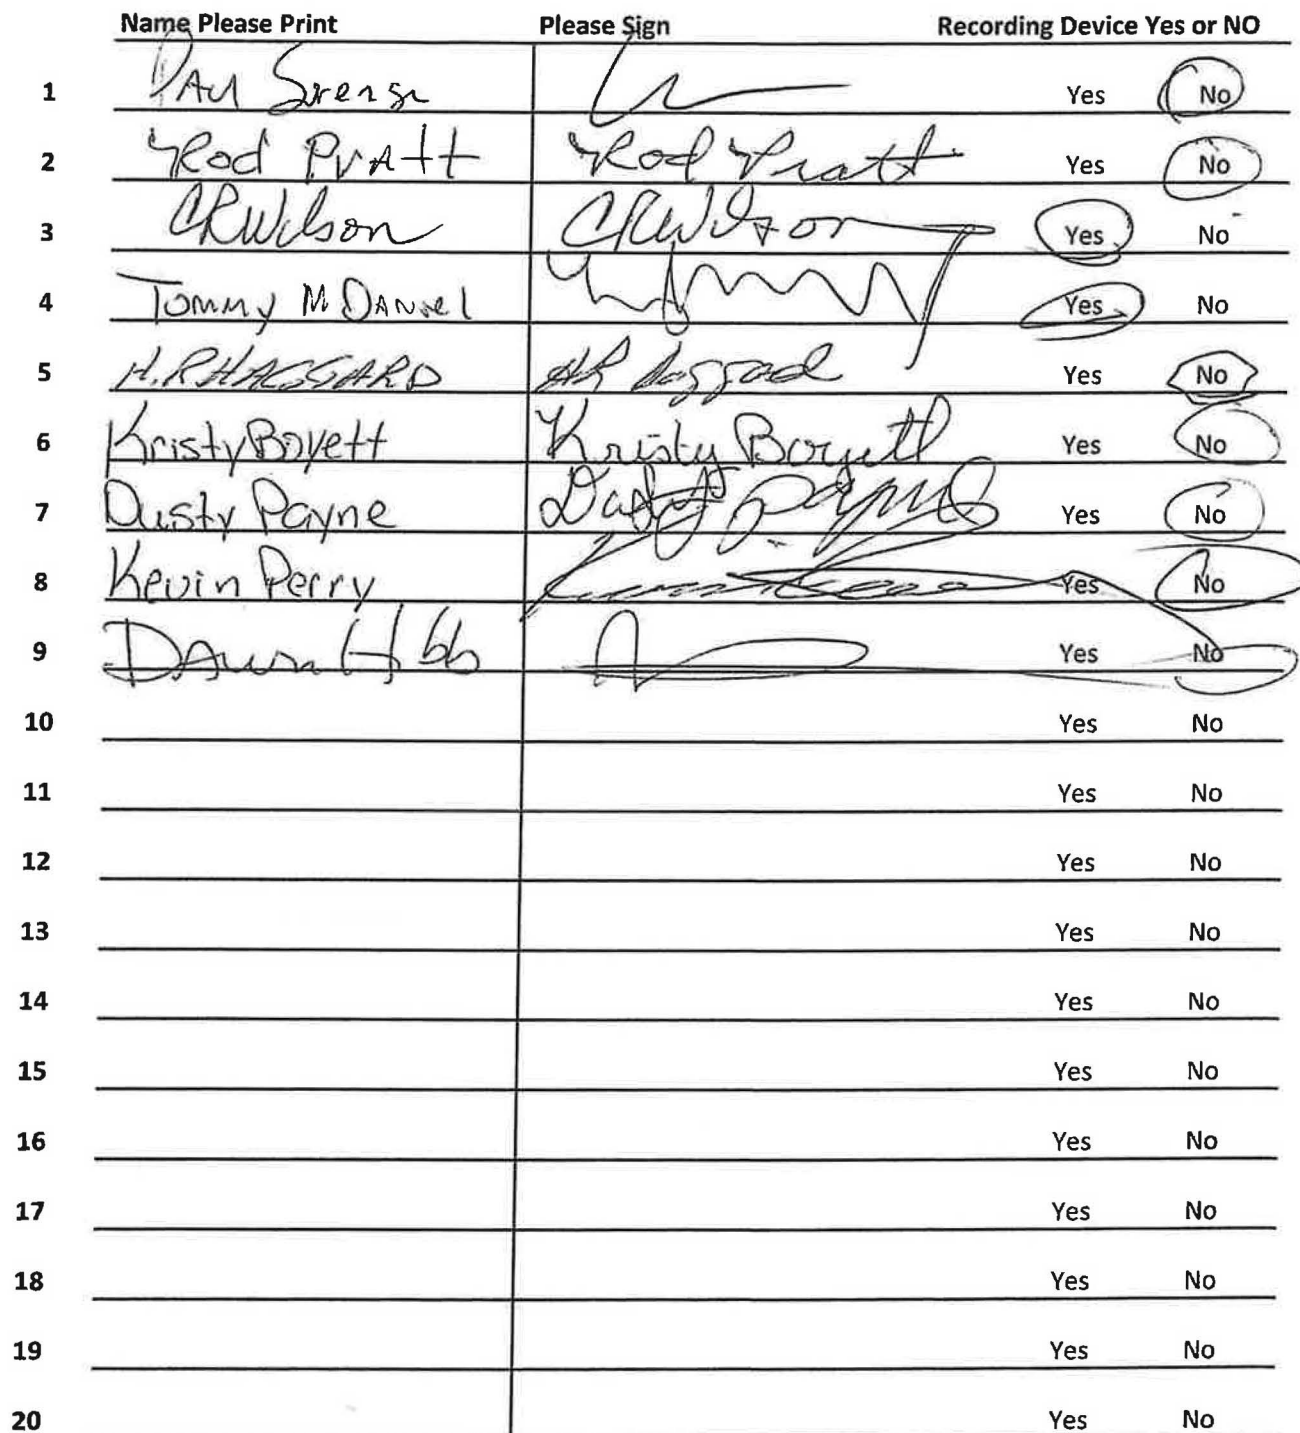 Name Please Print Please Sign Recording Device Yes or NO
1 Paul Yes No
2 Rod Pratt Rod Pratt Yes No
3 CRWilson CRWilson Yes No
4 Tommy McDaniel Yes No
5 H.R HAGGARD HR Haggard Yes No
6 Kristy Boyett Kristy Boyett Yes No
7 Dusty Payne Dusty Payne Yes No
8 Kevin Perry Yes No
9 Yes No
10 Yes No
11 Yes No
12 Yes No
13 Yes No
14 Yes No
15 Yes No
16 Yes No
17 Yes No
18 Yes No
19 Yes No
20 Yes No